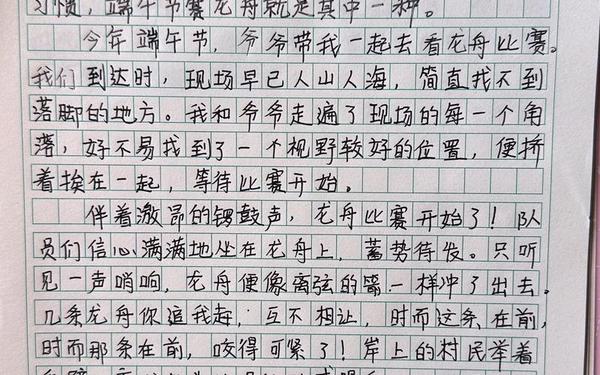 习惯，端午节赛龙舟就是其中一种。
今年端午节，爷爷带我一起去看龙舟比赛。
我们到达时，现场早已人山人海，简直找不到
落脚的地方。我和爷爷走遍了现场的每一个角
落，好不易找到了一个视野较好的位置，便挤
着挨在一起，等待比赛开始。
伴着激昂的锣鼓声，龙舟比赛开始了！队
员们信心满满地坐在龙舟上，蓄势待发。只听
见一声哨响，龙舟便像离弦的箭一样冲了出去。
几条龙舟你追我赶，互不相让，时而这条在前，
时而那条在前，咬得可紧了！岸上的村民举着